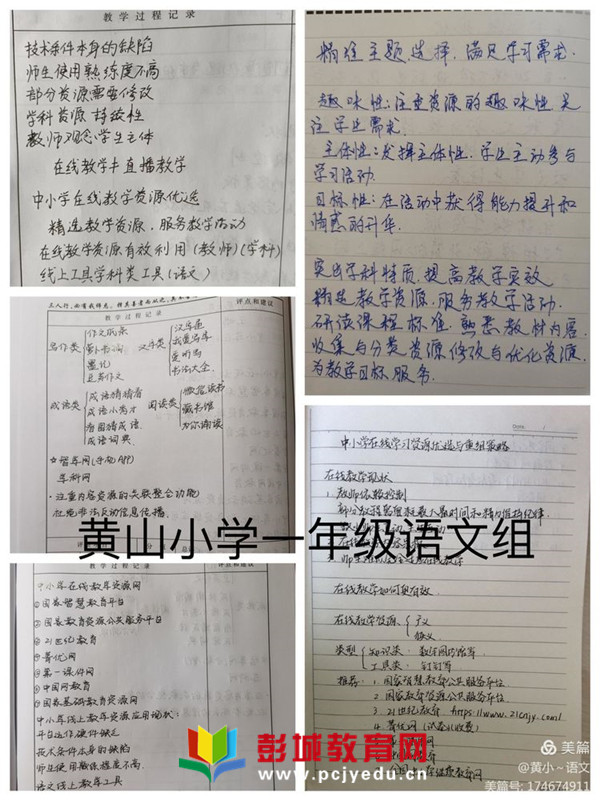 教学过程记录
技术条件本身的缺陷
师生使用熟练度不高
部分资源需要修改
学科资源 持续性
教师观念 学生主体
在线教学≠直播教学
中小学在线教学资源优选
精选教学资源，服务教学活动
在线教学资源有效利用(教师)(学科)
线上工具学科类工具(语文)
精准主题选择，满足学习需求.
趣味性:注重资源的趣味性,关
注学生需求.
主体性:发挥主体性,学生主动参与
学习活动.
目标性:在活动中获得能力提升和
情感的升华.
突出学科特质,提高教学实效
精选教学资源,服务教学活动.
研读课程标准,熟悉教材内容.
收集与分类资源,修改与优化资源,
为教学目标服务.
教学过程记录
评点和建议
写作类
作文纸条
汉字类
书法大全.
成语类
成语猜猜看
成语小秀才
看图猜成语.
成语词典.
阅读类
微信读书
藏书馆
为你诵读
注重内容资源的关联整合功能)
杜绝非法反动信息传播.
黄山小学一年级语文组
教学过程记录
评点和建议
中小学在线教育资源网
①国家智慧教育平台
②国家教育资源公共服务平台
③21世纪教育
④菁优网
⑤第一课件网
⑥中国网教育
⑧国家基础教育资源网
中小学线上教学资源应用现状:
平台运作硬件缺乏
技术条件本身的缺陷
师生使用熟练程度不高.
语文线上教学工具
中小学在线学习资源优选与重组策略
在线教学现状
1.教师体验控制
在线教学如何更有效.
在线教学资源
广义
狭义
类型
知识类:
工具类: 钉钉等
推荐: 1.国家智慧教育公共服务平台
2.国家教育资源公共服务平台
3.21世纪教育 https://www.21cnjy.com/
4.菁优网
彭城教育网
www.pcjyedu.cn
美篇
@黄小~语文
美篇号: 174674911